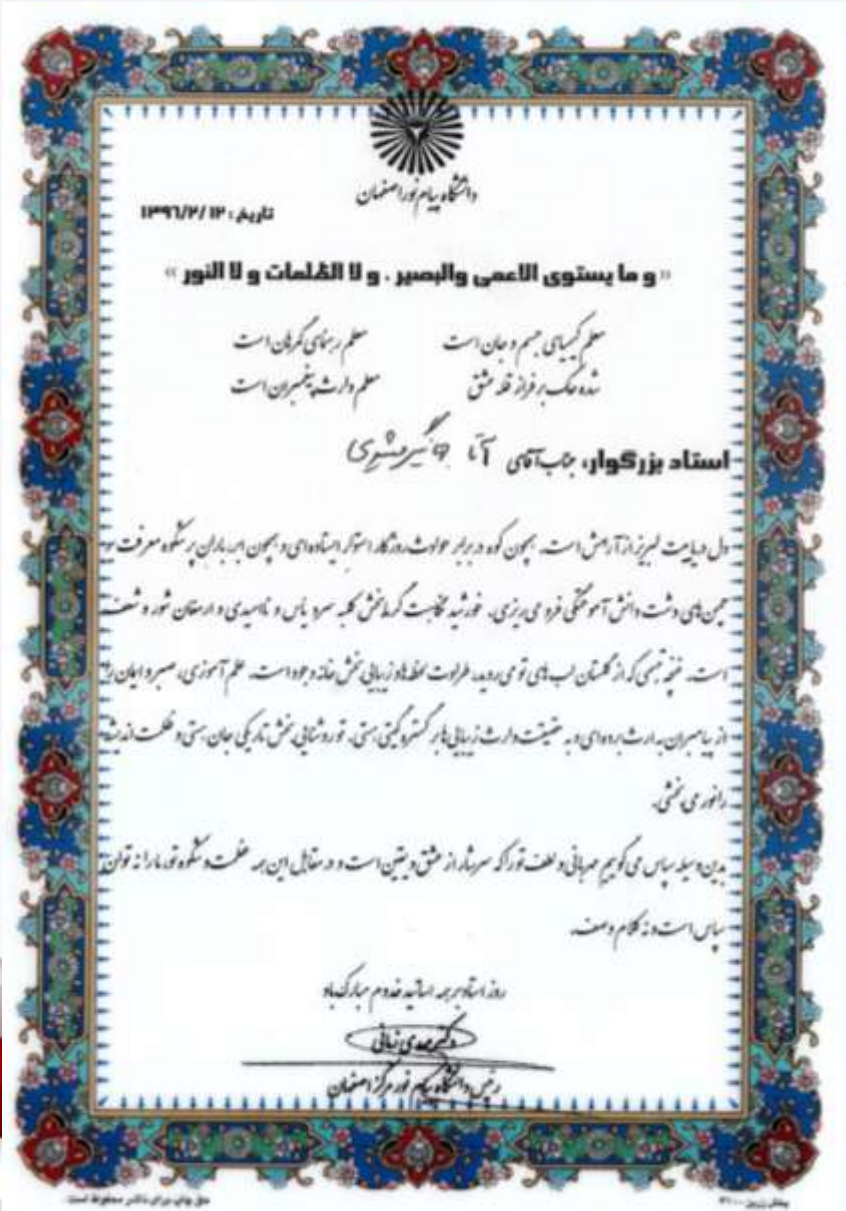 دانشگاه پیام نور اصفهان
تاریخ : ۱۳۹۶/۲/۱۲
« و ما یستوی الاعمی والبصیر . و لا الظلمات و لا النور »
معلم کیمیای جسم و جان است معلم رهنمای گمرهان است
شده حک بر فراز قله عشق معلم وارث پیغمبران است
استاد بزرگوار، جناب آقای آقا
دل دریاییت لبریز از آرامش است. همچون کوه در برابر حوادث روزگار استوار ایستاده‌ای و همچون ابر، باران پر شکوه معرفت بر
چمن‌های دشت دانش آموختگی فرو می‌ریزی. خورشید نگاهت گرمابخش کلبه سرد یأس و ناامیدی و ارمغان شور و شعف
است. غنچه تبسمی که از گلستان لب‌های تو می‌روید، طراوت لحظه‌ها و زیبایی بخش خانه وجود است. علم آموزی، صبر و ایمان را
از پیامبران به ارث برده‌ای و به حقیقت وارث زیبایی‌ها بر گستره گیتی هستی. تو روشنایی بخش تاریکی جان هستی و ظلمت اندیشه
را نور می‌بخشی.
بدین وسیله سپاس می‌گوییم مهربانی و لطف تو را که سرشار از عشق و یقین است و در مقابل این همه عظمت و شکوه تو، ما را نه توان
سپاس است و نه کلام وصف.
روز استاد بر همه اساتید خدوم مبارک باد
دکتر مهدی زمانی
رئیس دانشگاه پیام نور مرکز اصفهان
حق چاپ برای ناشر محفوظ است